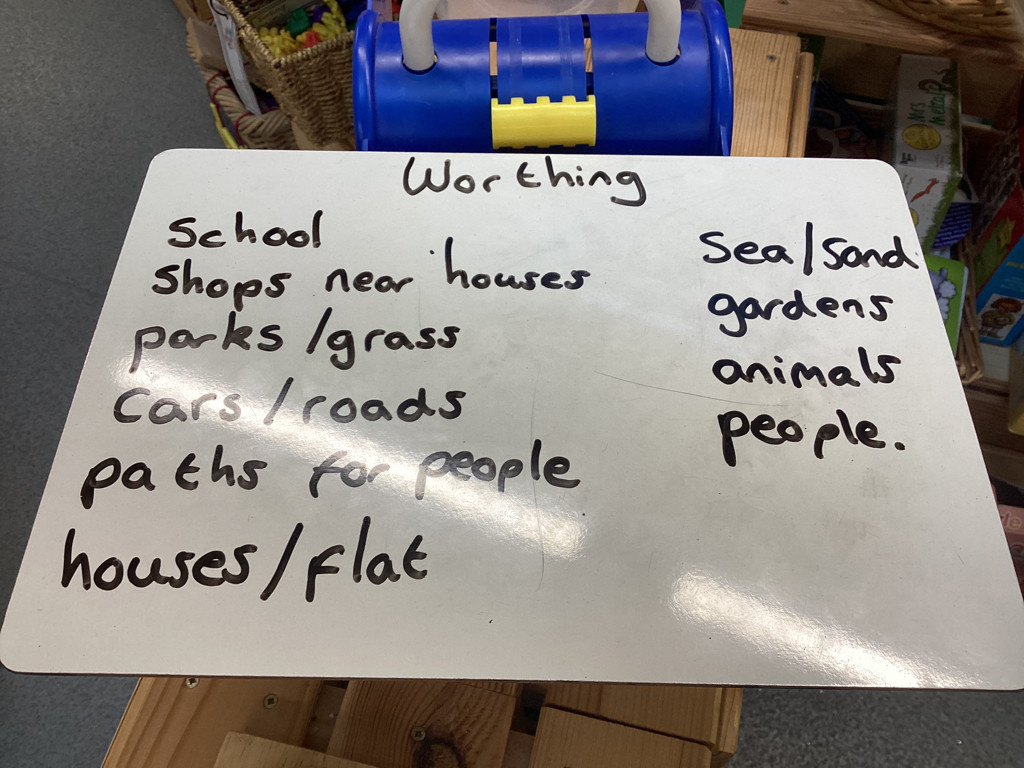 Worthing
School
Shops near houses
parks/grass
Cars/roads
paths for people
houses/flat
Sea/Sand
gardens
animals
people.